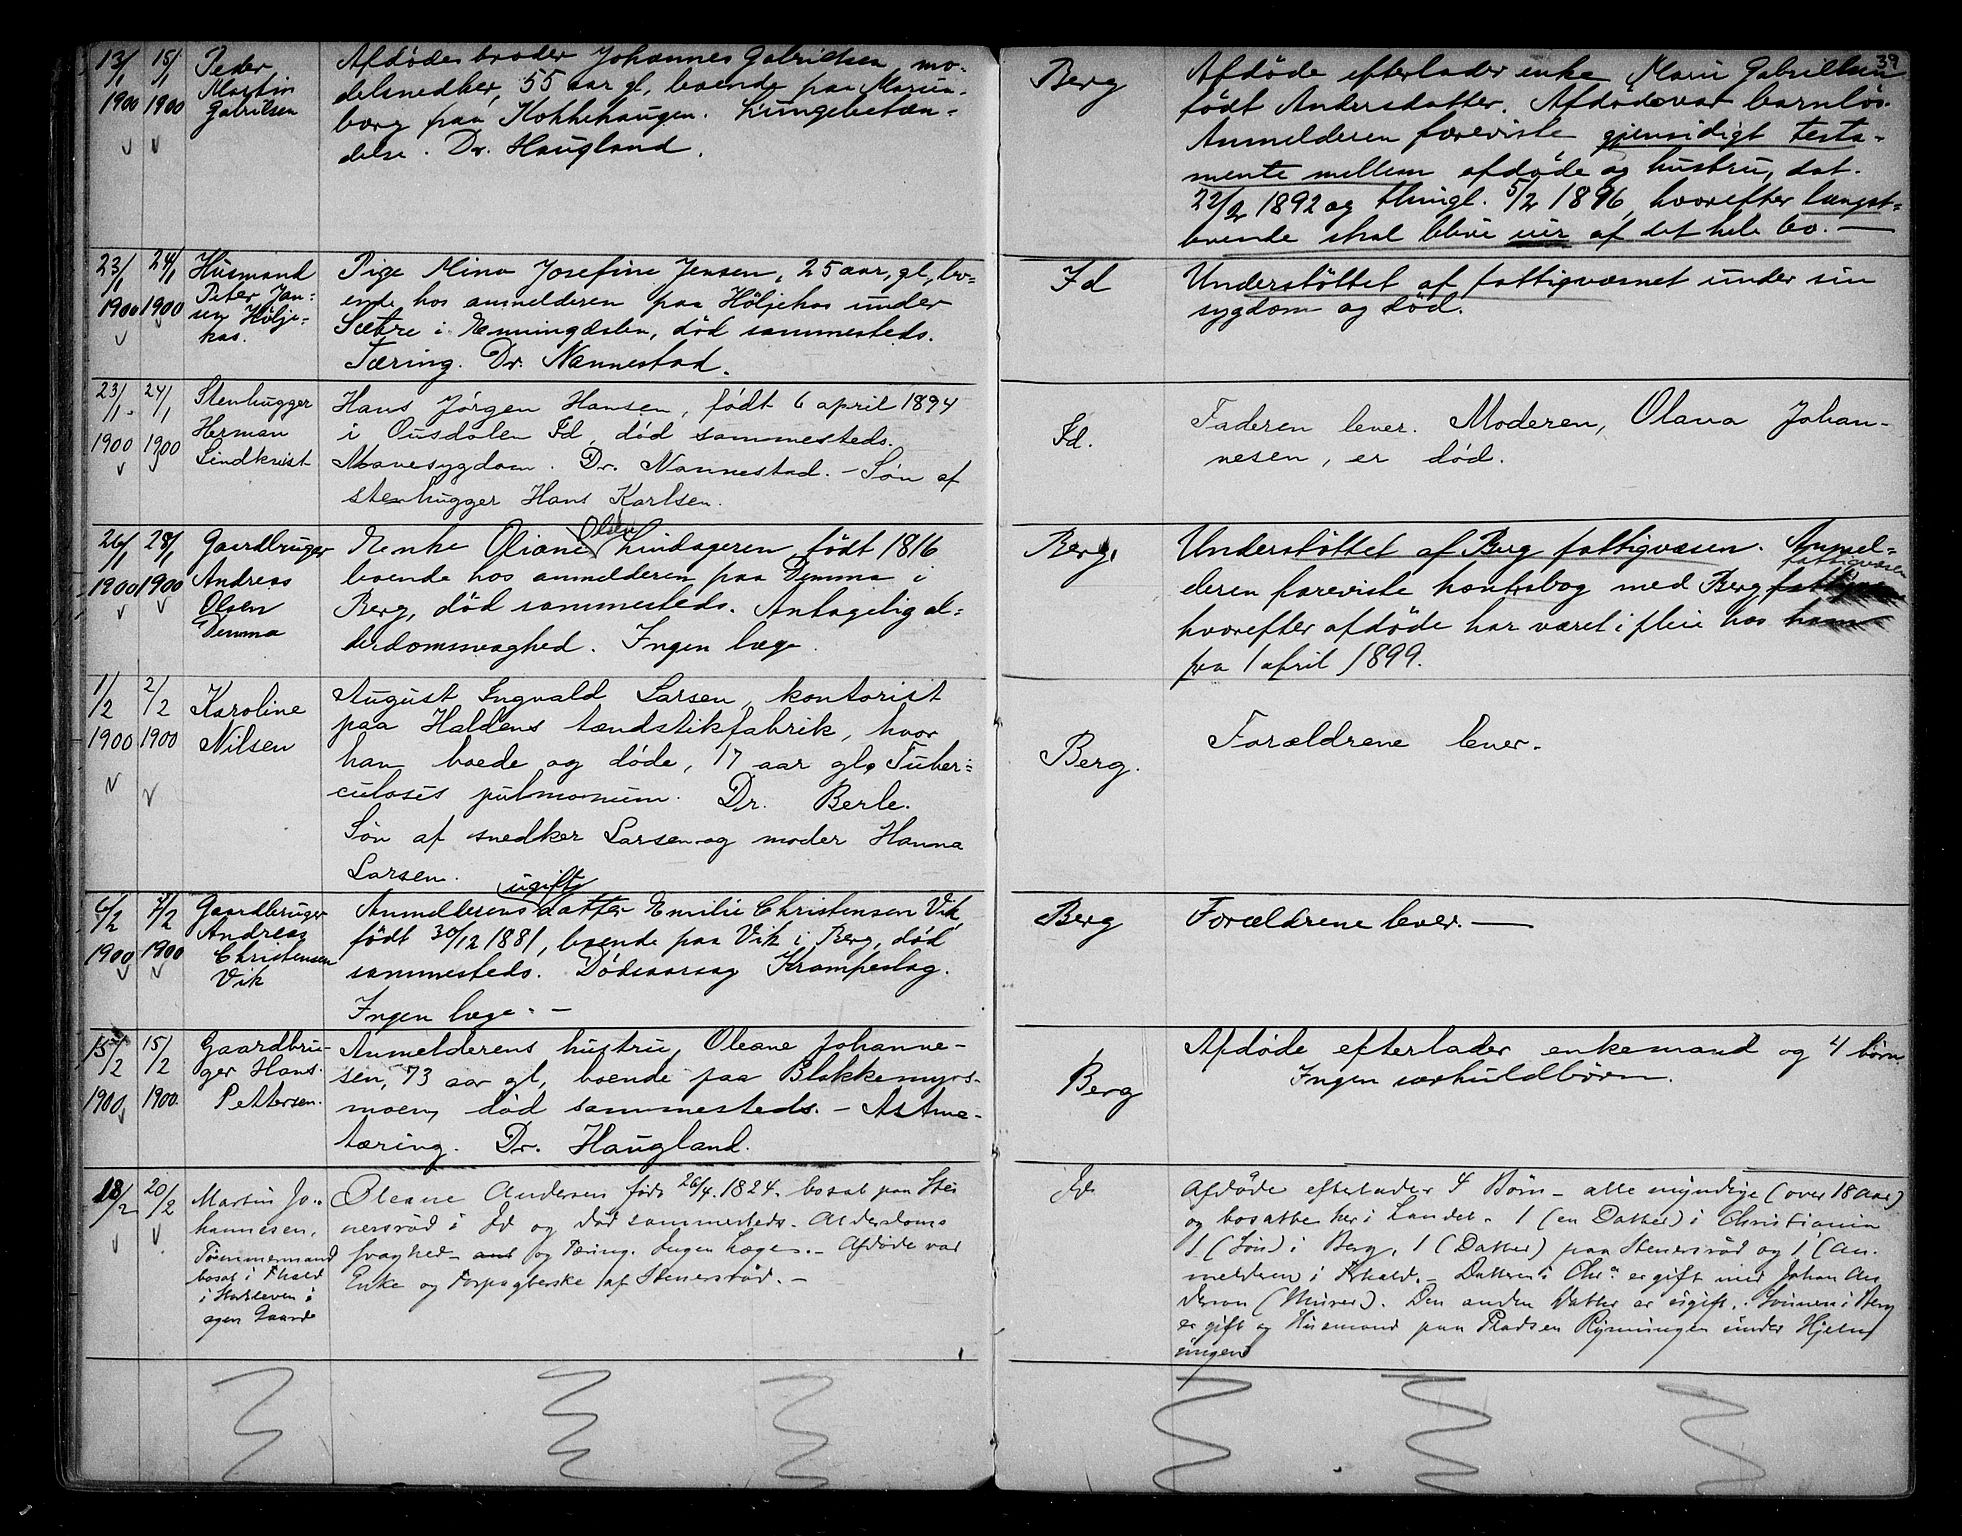 39
13/1 1900
15/1 1900
Peder
Martin
Gabrilsen
Afdødes broder Johannes Gabrielsen mo-
delsnedker, 55 aar gl, boende paa Marien-
borg paa Kokkehaugen. Lungebetæn-
delse. Dr. Haugland.
Berg
Afdøde efterlader enke Marie Gabrielsen
født Andersdatter. Afdøde var barnløs.
Anmelderen foreviste gjensidigt testa-
mente mellem afdøde og hustru, dat.
22/2 1892 og thingl. 5/2 1896, hvorefter længst-
levende skal blive eier af det hele bo. —
23/1 1900
24/1 1900
Husmand
Peter Jan-
sen Hølje-
kas.
Pige Mina Josefine Jensen, 25 aar, gl, bo-
ende hos anmelderen paa Höljekas under
Sætre i Enningdalen, död sammesteds.
Tæring. Dr. Nannestad.
Id
Understöttet af fattigvæsnet under sin
sygdom og död.
23/1 1900
24/1 1900
Stenhugger
Herman
Lindkvist
Hans Jörgen Hansen, født 6 april 1894
i Ousdalen Id, død sammesteds.
Mavesygdom. Dr. Nannestad. - Søn af
stenhugger Hans Karlsen.
Id.
Faderen lever. Moderen, Olava Johan-
nesen, er død.
26/1 1900
28/1 1900
Gaardbruger
Andreas
Olsen
Demma
Olsen
Enke Oliane Lindageren født 1816
boende hos anmelderen paa Demma i
Berg, død sammesteds. Antagelig al-
derdomssvaghed. Ingen læge.
Berg.
Understöttet af Berg fattigvæsen. Anmel-
fattigvæsen
deren foreviste kontrabog med Berg
hvorefter afdøde har været i pleie hos ham
fra 1 april 1899.
1/2 1900
2/2 1900
Karoline
Nilsen
August Ingvald Larsen, kontorist
paa Haldens tændstikfabrik, hvor
han boede og døde, 17 aar gl. Tuber-
culosis pulmonum. Dr. Berle.
Søn af snedker Larsen og moder Hanna
Larsen.
Berg.
Forældrene lever.
6/2 1900
7/2 1900
Gaardbruger
Andreas
Christensen
Vik
ugift
Anmelderens datter Emilie Christensen Vik,
født 30/12 1881, boende paa Vik i Berg, død
sammesteds. Dødsaarsag Krampeslag.
Ingen læge. —
Berg
Forældrene lever. —
15/2 1900
15/2 1900
Gaardbru-
ger Hans
Pettersen.
Anmelderens hustru Oleane Johanne-
sen, 73 aar gl, boende paa Blakkemyrs-
moen, død sammesteds. - Astme-
tæring. Dr. Haugland.
Berg
Afdøde efterlader enkemand og 4 børn
Ingen særkuldbörn.
18/2
20/2
Martin Jo-
hannesen,
Tømmermand
bosat i Fhald
i
egen Gaard
Oleane Andersen født 26/4. 1824. bosat paa Ste
nersrød i Id og død sammesteds. Alderdoms
svaghed og Tæring. Ingen Læge. - Afdøde var
Enke og Forpagterske af Stenersrød. -
Id
Afdøde efterlader 4 Børn - alle myndige (over 18 aar)
og bosatte her i Landet. 1 (en Datter) i Christiania
1 (Søn) i Berg, 1 (Datter) paa Stenersrød og 1 (An-
melderen i Fhald. - Datteren i Chr.a er gift med Johan An
derson (Murer). Den anden Datter er ugift. Sønnen i Berg
er gift og Husmand paa Pladsen Rymningen under Hjelm
ungen